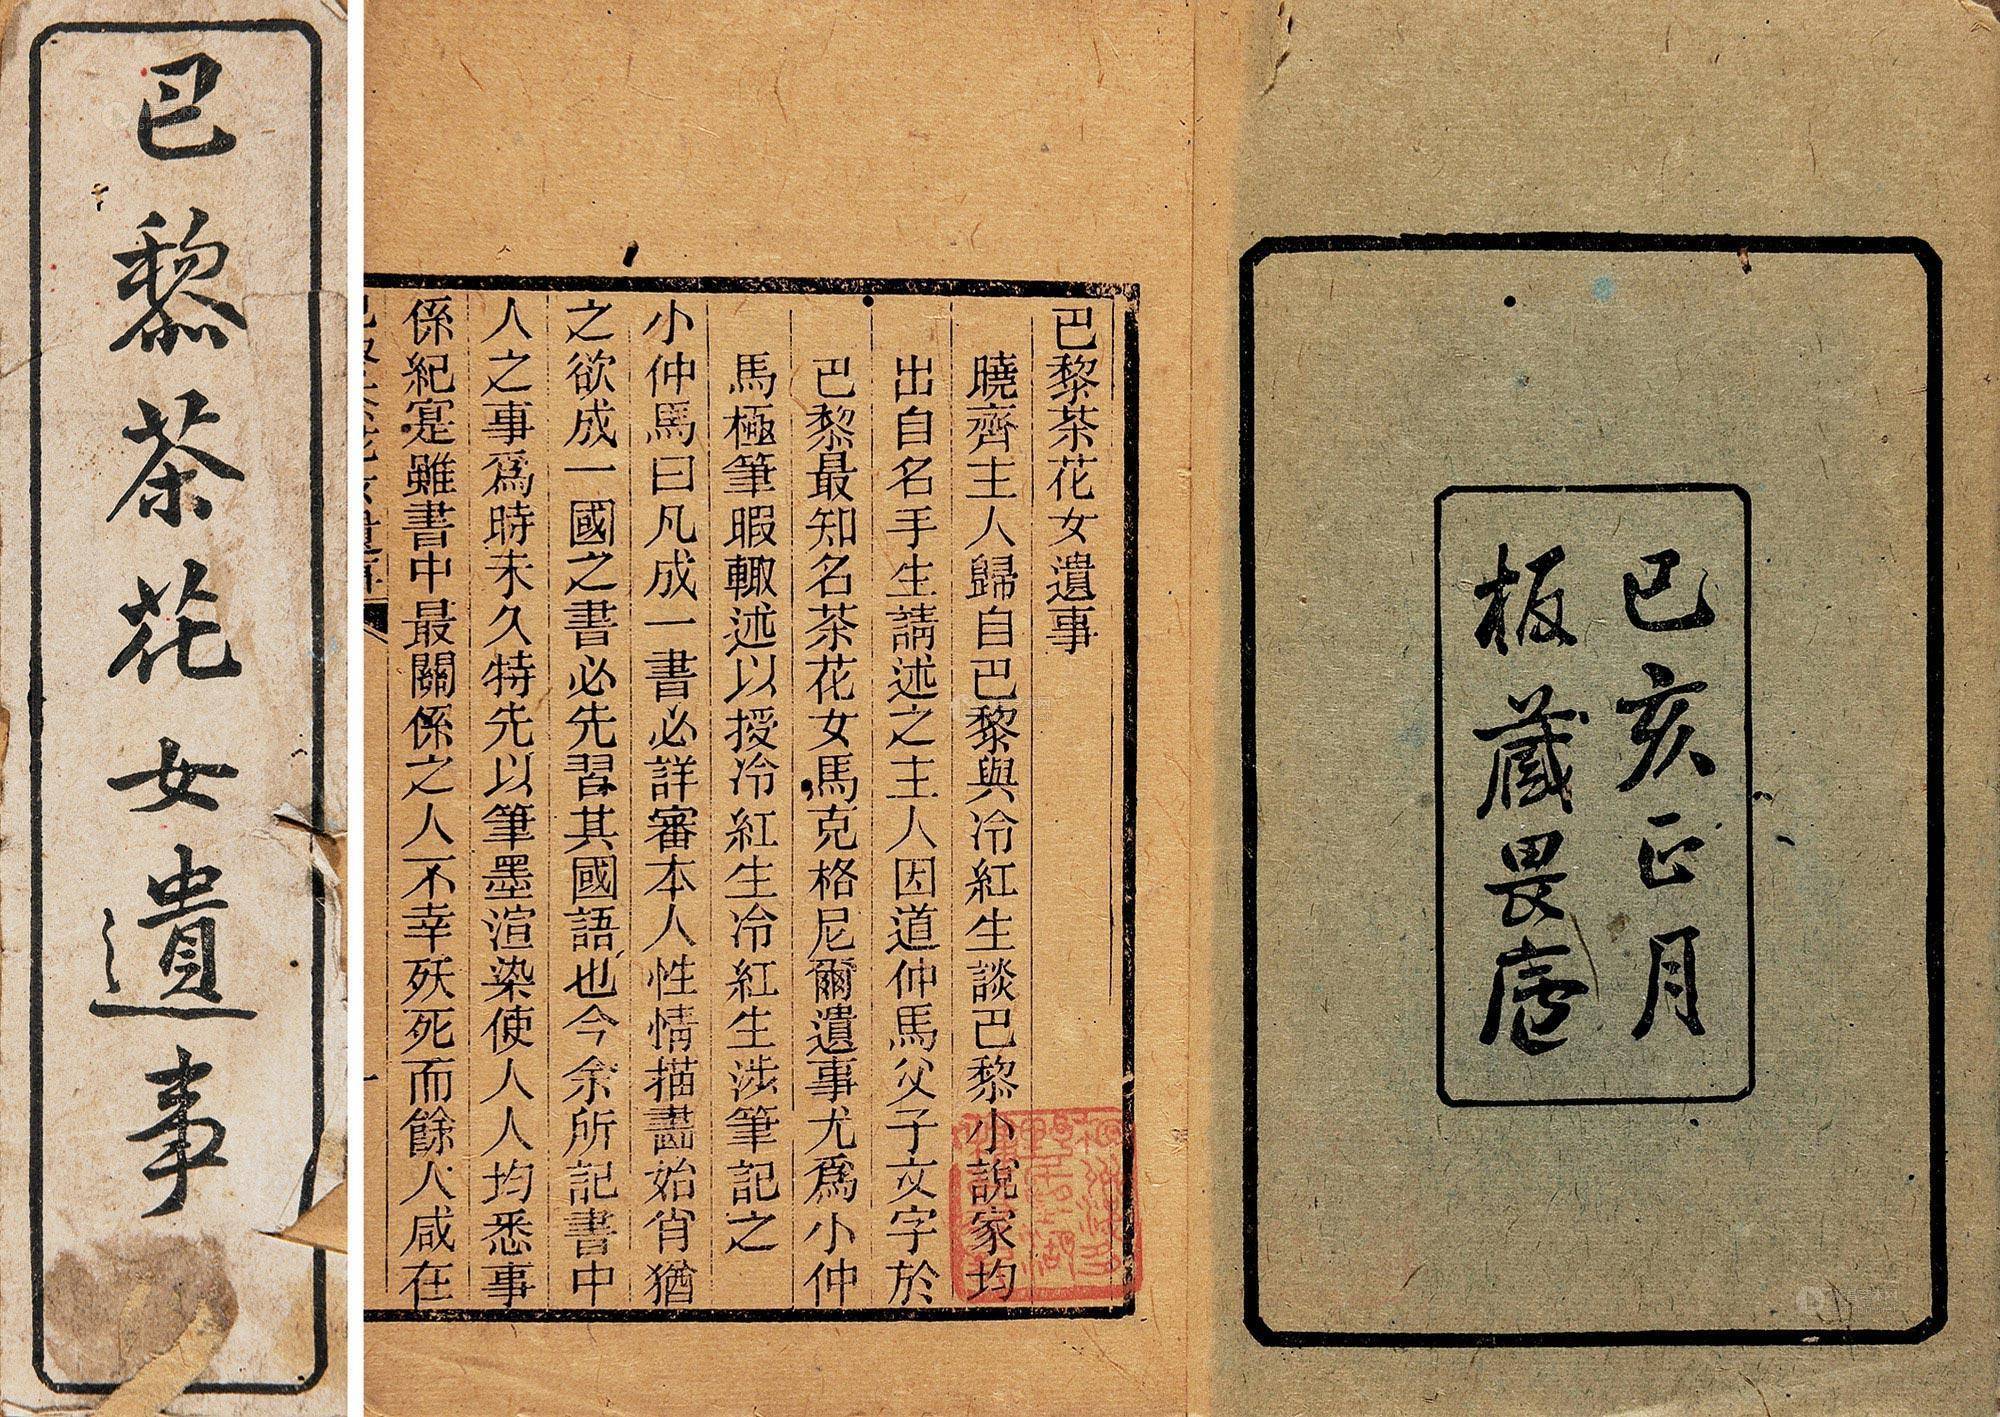 巴黎茶花女遺事
己亥正月
板藏畏廬
巴黎茶花女遺事
曉齋主人歸自巴黎與冷紅生談巴黎小說家均
出自名手生請述之主人因道仲馬父子文字於
巴黎最知名茶花女馬克格尼爾遺事尤爲小仲
馬極筆暇輙述以授冷紅生冷紅生涉筆記之
小仲馬曰凡成一書必詳審本人性情描畫始肖猶
之欲成一國之書必先習其國語也今余所記書中
人之事爲時未久特先以筆墨渲染使人人均悉事
係紀寔雖書中最關係之人不幸殀死而餘人咸在